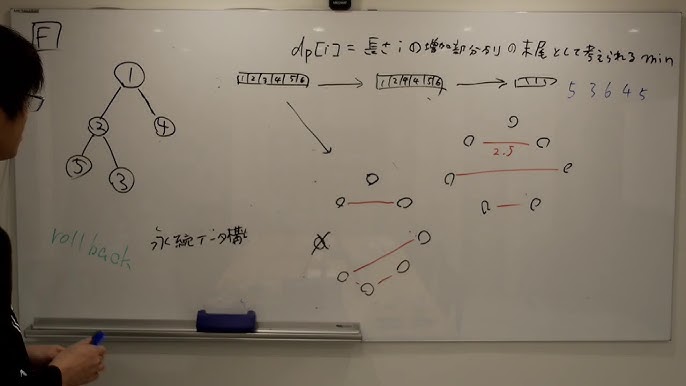 F
dp[i] = 長さiの増加部分列の末尾として考えられるmin
1 2 3 4 5 6
1 2 9 4 5 6
5 3 6 4 5
1
2 4
5 3
2.5
rollback
永続データ構造